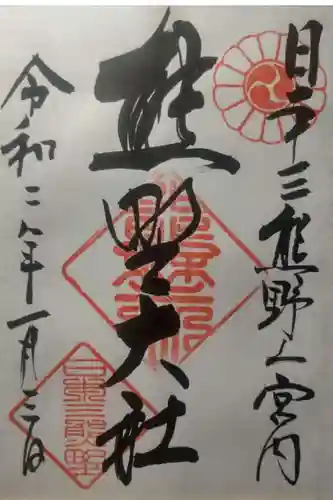 日本三熊野上宮内
熊野大社
令和二年一月三日
日本三熊野